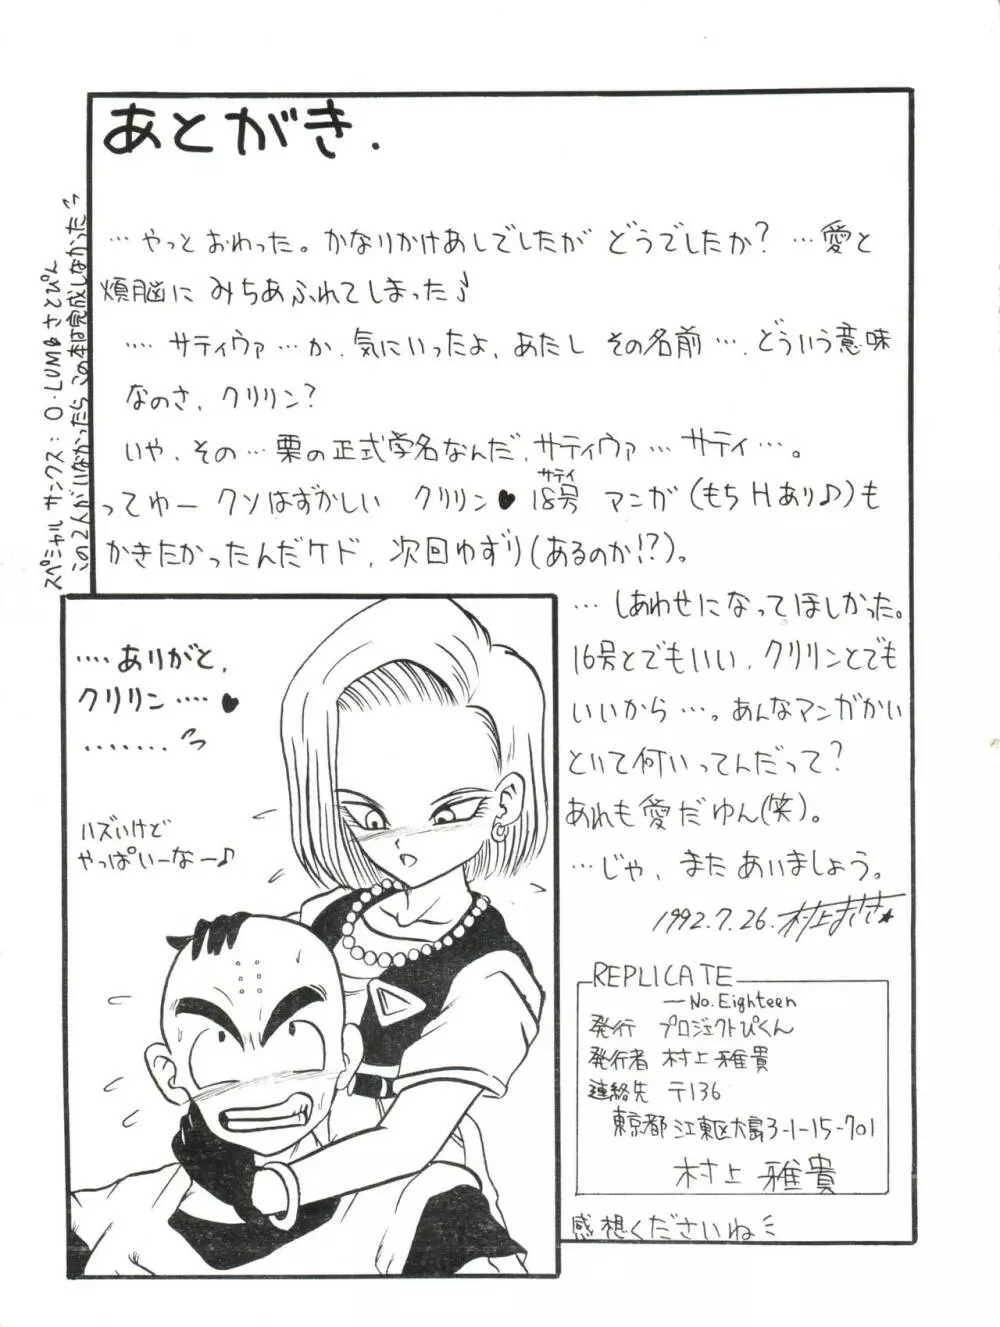 あとがき.
…やっとおわった。かなりかけあしでしたが どうでしたか? …愛と
煩脳に みちあふれてしまった♪
…. サティヴァ…か. 気にいったよ、あたし その名前…. どういう意味
なのさ、クリリン?
いや、その…栗の正式学名なんだ、サティヴァ…サティ…。
ってゆー クソはずかしい クリリン♥18号 マンガ(もちHあり♪)も
サティ
かきたかったんだケド、次回ゆずり(あるのか!?)。
…しあわせになってほしかった。
16号とでもいい、クリリンとでも
いいから…。あんなマンガかい
といて何いってんだって?
あれも愛だゆん(笑)。
…じゃ、またあいましょう。
1992.7.26. 村上まさき★
スペシャルサンクス: O・LUM さとぴん
この2人がいなかったら この本は完成しなかった
….ありがと、
クリリン….♥
.......
ハズいけど
やっぱいーなー♪
REPLICATE
—No.Eighteen
発行 プロジェクトぴくん
発行者 村上雅貴
連絡先 〒136
東京都江東区大島3-1-15-701
村上 雅貴
感想くださいね